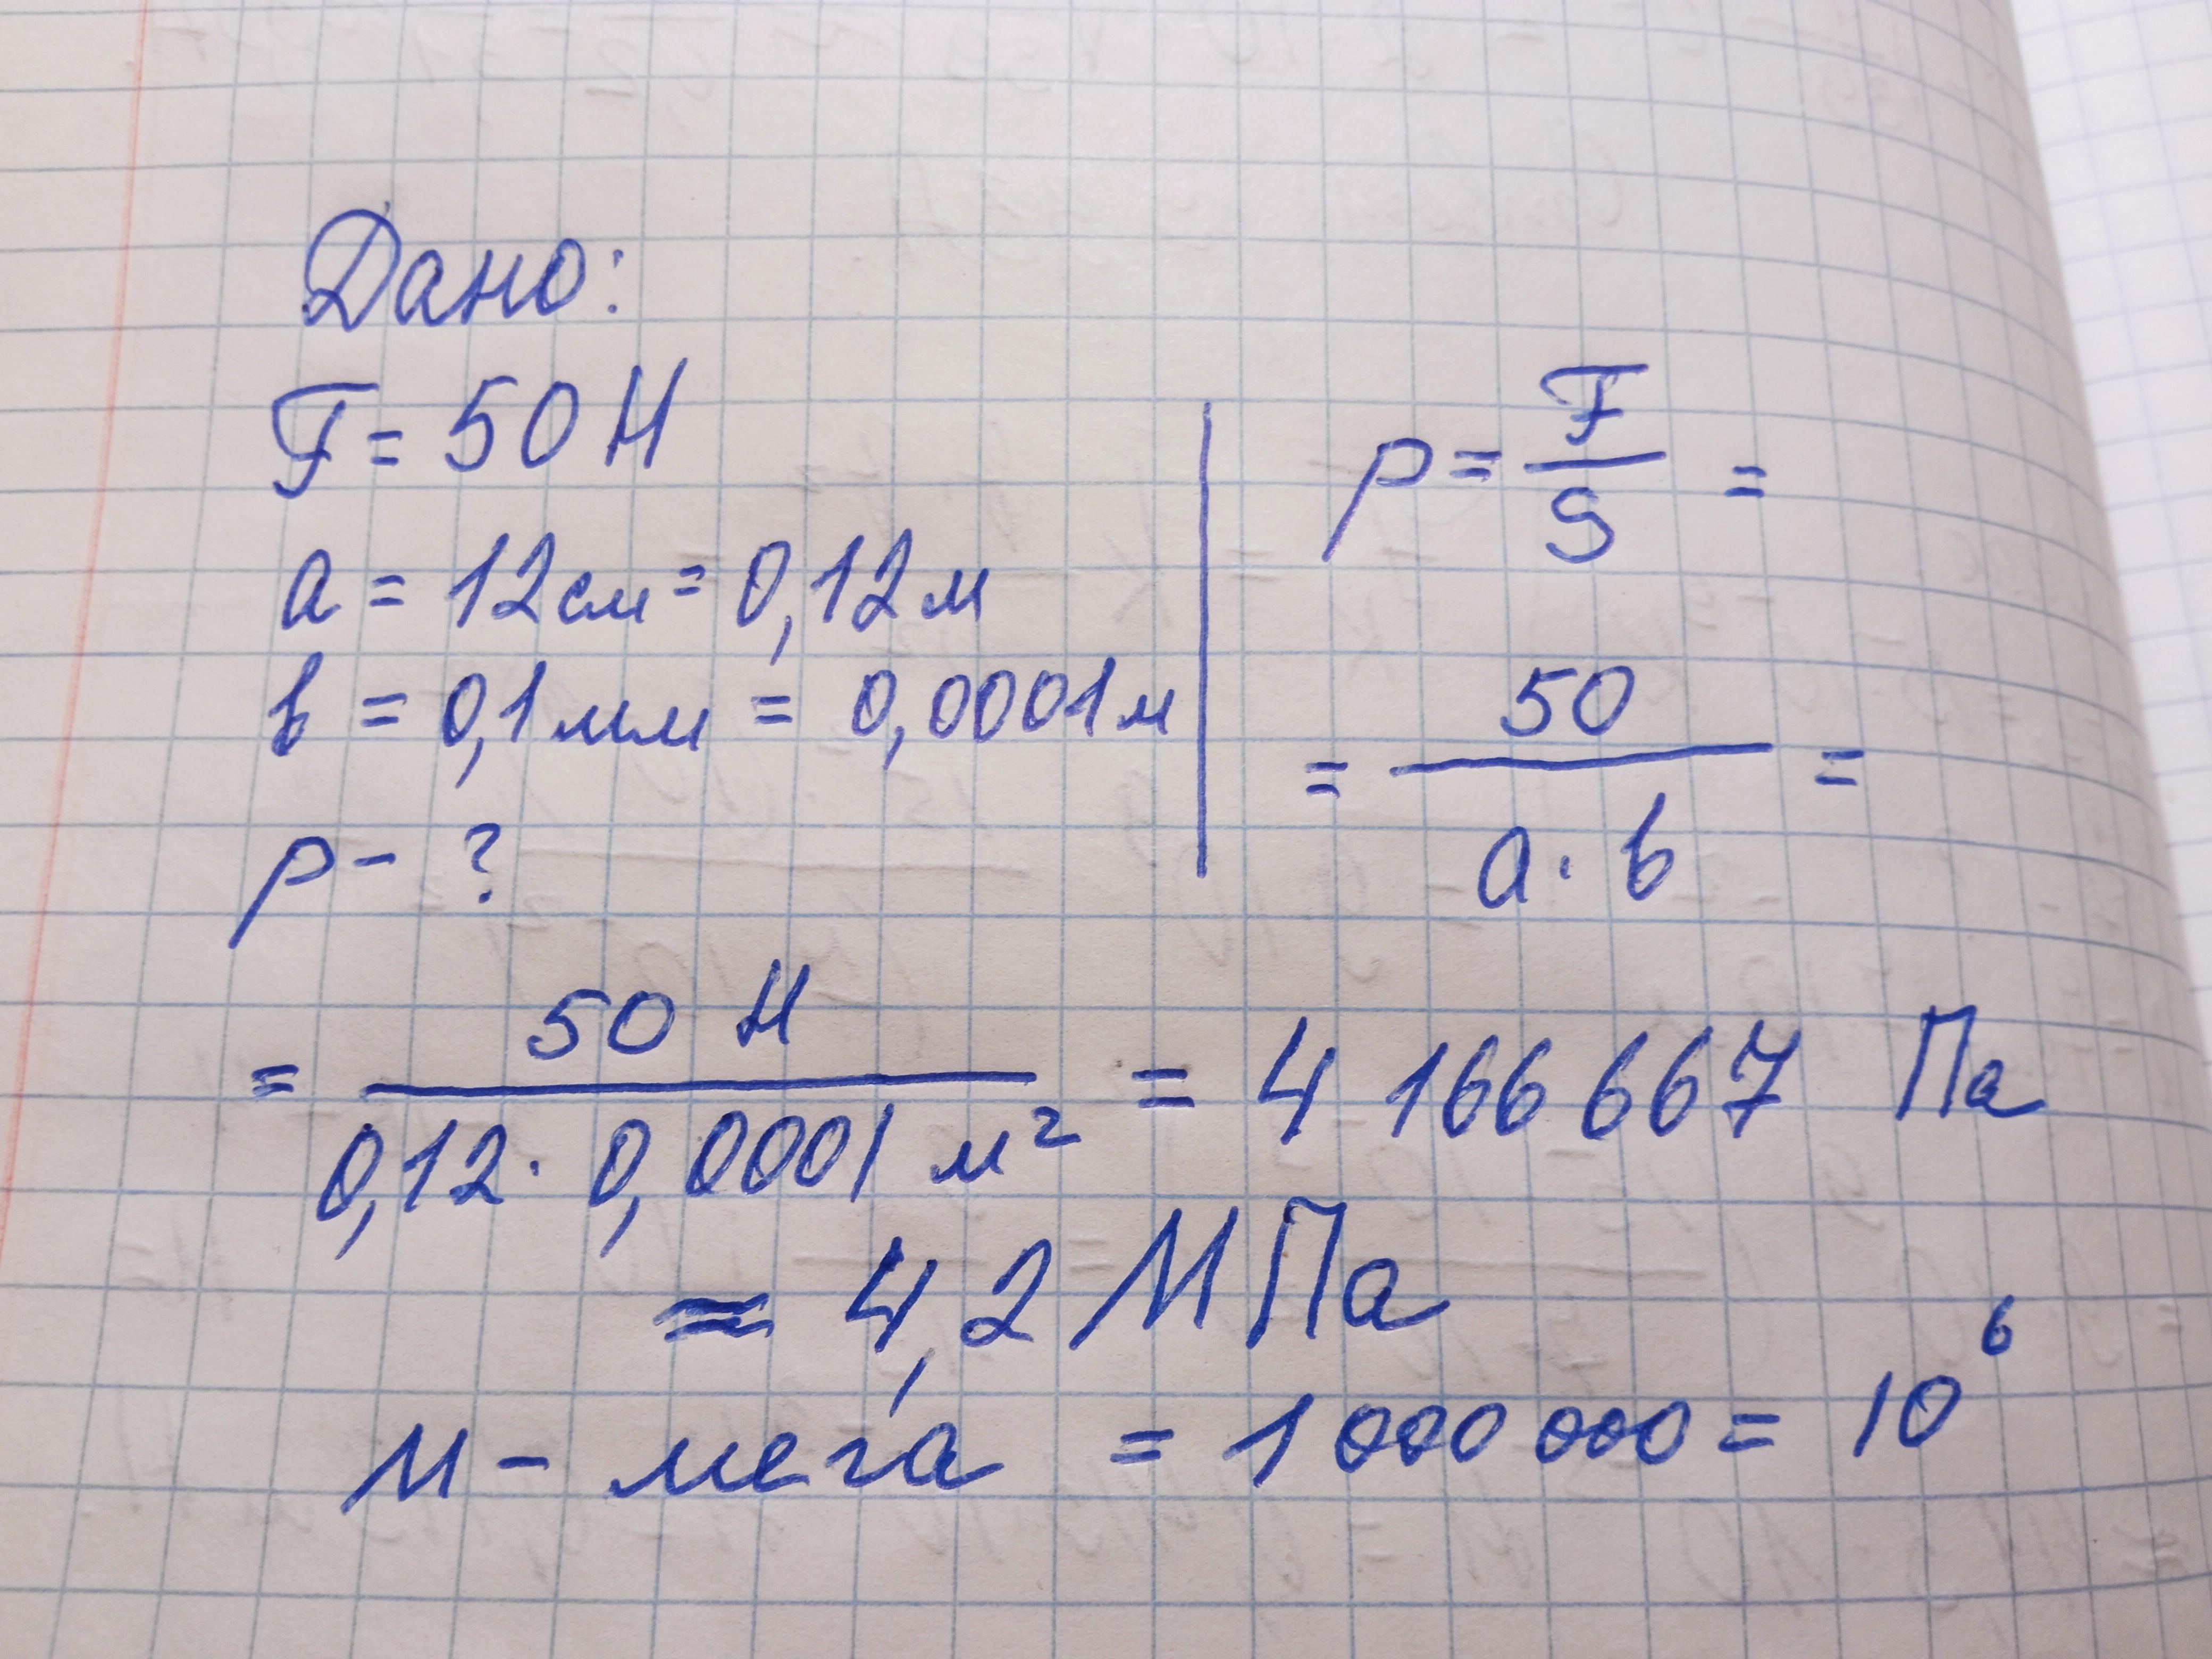 Дано:
F = 50 Н
a = 12 см = 0,12 м
b = 0,1 мм = 0,0001 м
p - ?
p = F/S =
= 50/(a · b) =
= 50 Н/(0,12 · 0,0001 м²) = 4 166 667 Па
≈ 4,2 МПа
М - мега = 1 000 000 = 10⁶